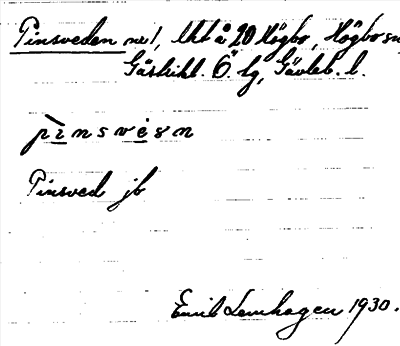 Pinsveden nr 1, Ukt å 20 Högbo, Högbo sn
Gästrikl. Ö. tg, Gävleb. l.
pinsvesn
Pinsved jb
Emil Lenhagen 1930.